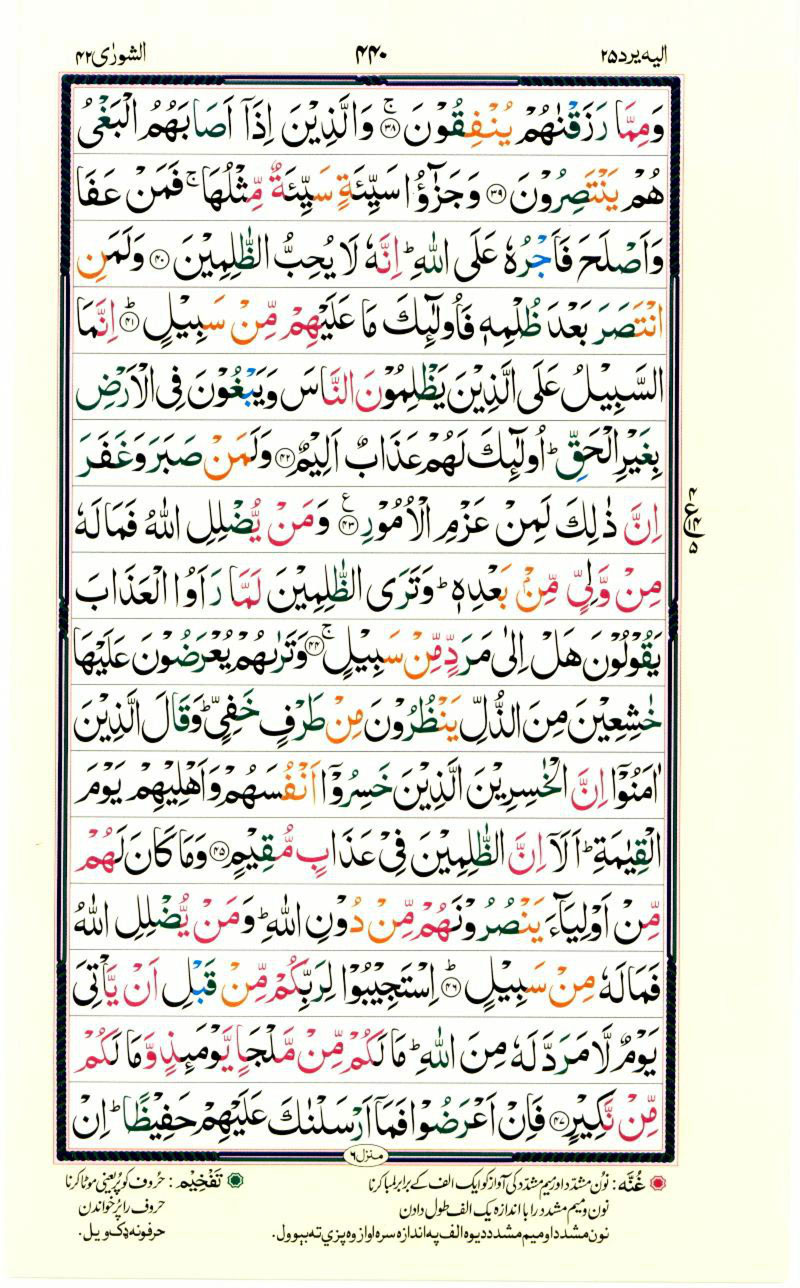 الیه یرد ۲۵ ۴۴۰ الشوری ۴۲
وَمِمَّا رَزَقْنٰهُمْ يُنْفِقُوْنَ ۚ‏﴿۳۸﴾ وَالَّذِيْنَ اِذَاۤ اَصَابَهُمُ الْبَغْىُ
هُمْ يَنْتَصِرُوْنَ ﴿۳۹﴾ وَجَزٰٓؤُا سَيِّئَةٍ سَيِّئَةٌ مِّثْلُهَا ۚ فَمَنْ عَفَا
وَاَصْلَحَ فَاَجْرُهٗ عَلَى اللّٰهِ ؕ اِنَّهٗ لَا يُحِبُّ الظّٰلِمِيْنَ ﴿۴۰﴾ وَلَمَنِ
انْتَصَرَ بَعْدَ ظُلْمِهٖ فَاُولٰٓئِكَ مَا عَلَيْهِمْ مِّنْ سَبِيْلٍ ؕ﴿۴۱﴾ اِنَّمَا
السَّبِيْلُ عَلَى الَّذِيْنَ يَظْلِمُوْنَ النَّاسَ وَيَبْغُوْنَ فِى الْاَرْضِ
بِغَيْرِ الْحَقِّ ؕ اُولٰٓئِكَ لَهُمْ عَذَابٌ اَلِيْمٌ ﴿۴۲﴾ وَلَمَنْ صَبَرَ وَغَفَرَ
اِنَّ ذٰلِكَ لَمِنْ عَزْمِ الْاُمُوْرِ ﴿۴۳﴾ ع وَمَنْ يُّضْلِلِ اللّٰهُ فَمَا لَهٗ
۴ ع ۱۴ ۵
مِنْ وَّلِىٍّ مِّنْۢ بَعْدِهٖ ؕ وَتَرَى الظّٰلِمِيْنَ لَمَّا رَاَوُا الْعَذَابَ
يَقُوْلُوْنَ هَلْ اِلٰى مَرَدٍّ مِّنْ سَبِيْلٍ ۚ﴿۴۴﴾ وَتَرٰىهُمْ يُعْرَضُوْنَ عَلَيْهَا
خٰشِعِيْنَ مِنَ الذُّلِّ يَنْظُرُوْنَ مِنْ طَرْفٍ خَفِىٍّ ؕ وَقَالَ الَّذِيْنَ
اٰمَنُوْۤا اِنَّ الْخٰسِرِيْنَ الَّذِيْنَ خَسِرُوْۤا اَنْفُسَهُمْ وَاَهْلِيْهِمْ يَوْمَ
الْقِيٰمَةِ ؕ اَلَاۤ اِنَّ الظّٰلِمِيْنَ فِىْ عَذَابٍ مُّقِيْمٍ ﴿۴۵﴾ وَمَا كَانَ لَهُمْ
مِّنْ اَوْلِيَآءَ يَنْصُرُوْنَهُمْ مِّنْ دُوْنِ اللّٰهِ ؕ وَمَنْ يُّضْلِلِ اللّٰهُ
فَمَا لَهٗ مِنْ سَبِيْلٍ ؕ﴿۴۶﴾ اِسْتَجِيْبُوْا لِرَبِّكُمْ مِّنْ قَبْلِ اَنْ يَّاْتِىَ
يَوْمٌ لَّا مَرَدَّ لَهٗ مِنَ اللّٰهِ ؕ مَا لَكُمْ مِّنْ مَّلْجَاٍ يَّوْمَئِذٍ وَّمَا لَكُمْ
مِّنْ نَّكِيْرٍ ﴿۴۷﴾ فَاِنْ اَعْرَضُوْا فَمَاۤ اَرْسَلْنٰكَ عَلَيْهِمْ حَفِيْظًا ؕ اِنْ
منزل ۶
غُنّه : نون مشدد اور میم مشدد کی آواز کو ایک الف کے برابر لمبا کرنا
نون و میم مشدد را با اندازه یک الف طول دادن
نون مشدد او میم مشدد دیوه الف په اندازه سره اواز وه پزي ته بېوول.
تَفْخِیْم : حروف کو پُر یعنی موٹا کرنا
حروف را پُر خواندن
حرفونه ډک ویل.